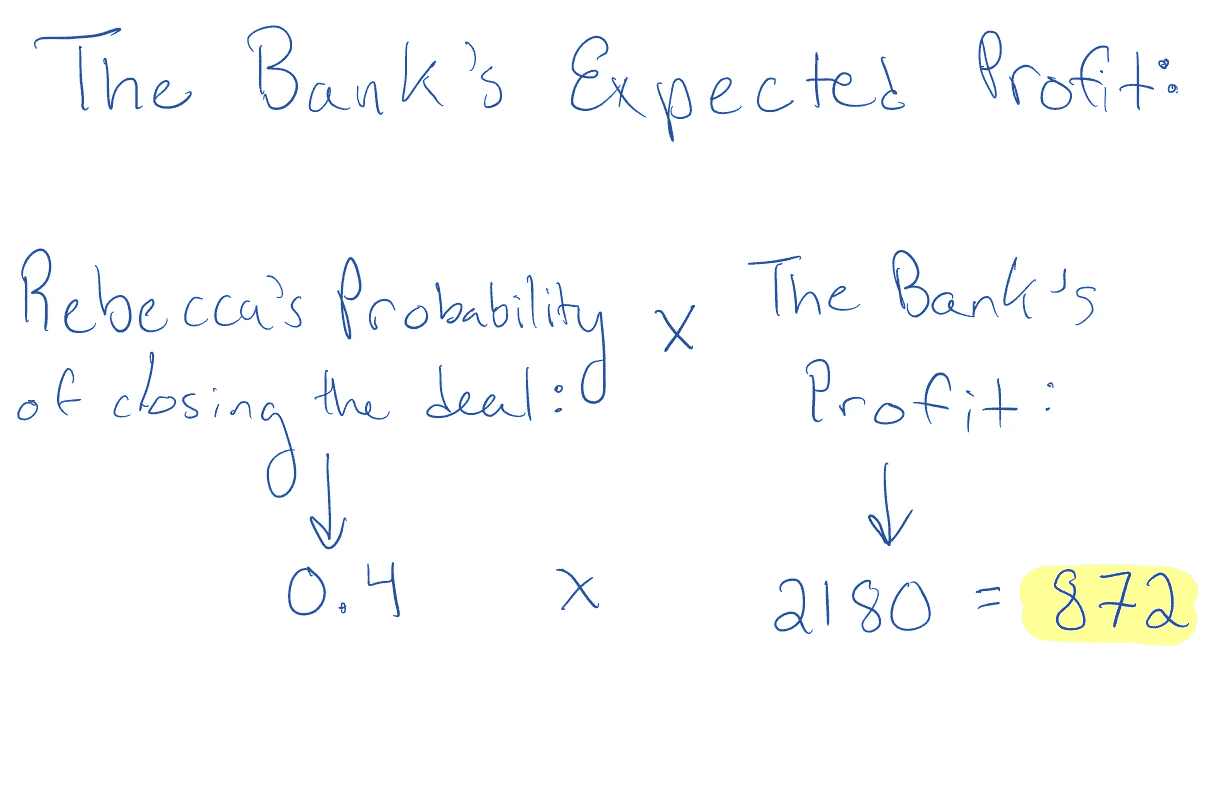 The Bank's Expected Profit:
Rebecca's Probability
of closing the deal:
x
The Bank's
Profit:
0.4 x 2180 = 872